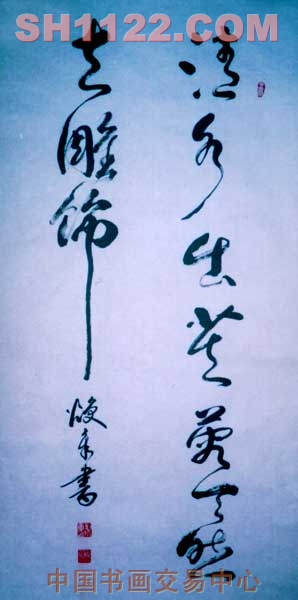 SH1122.COM
清水出芙蓉天然
去雕饰
焕章书
中国书画交易中心